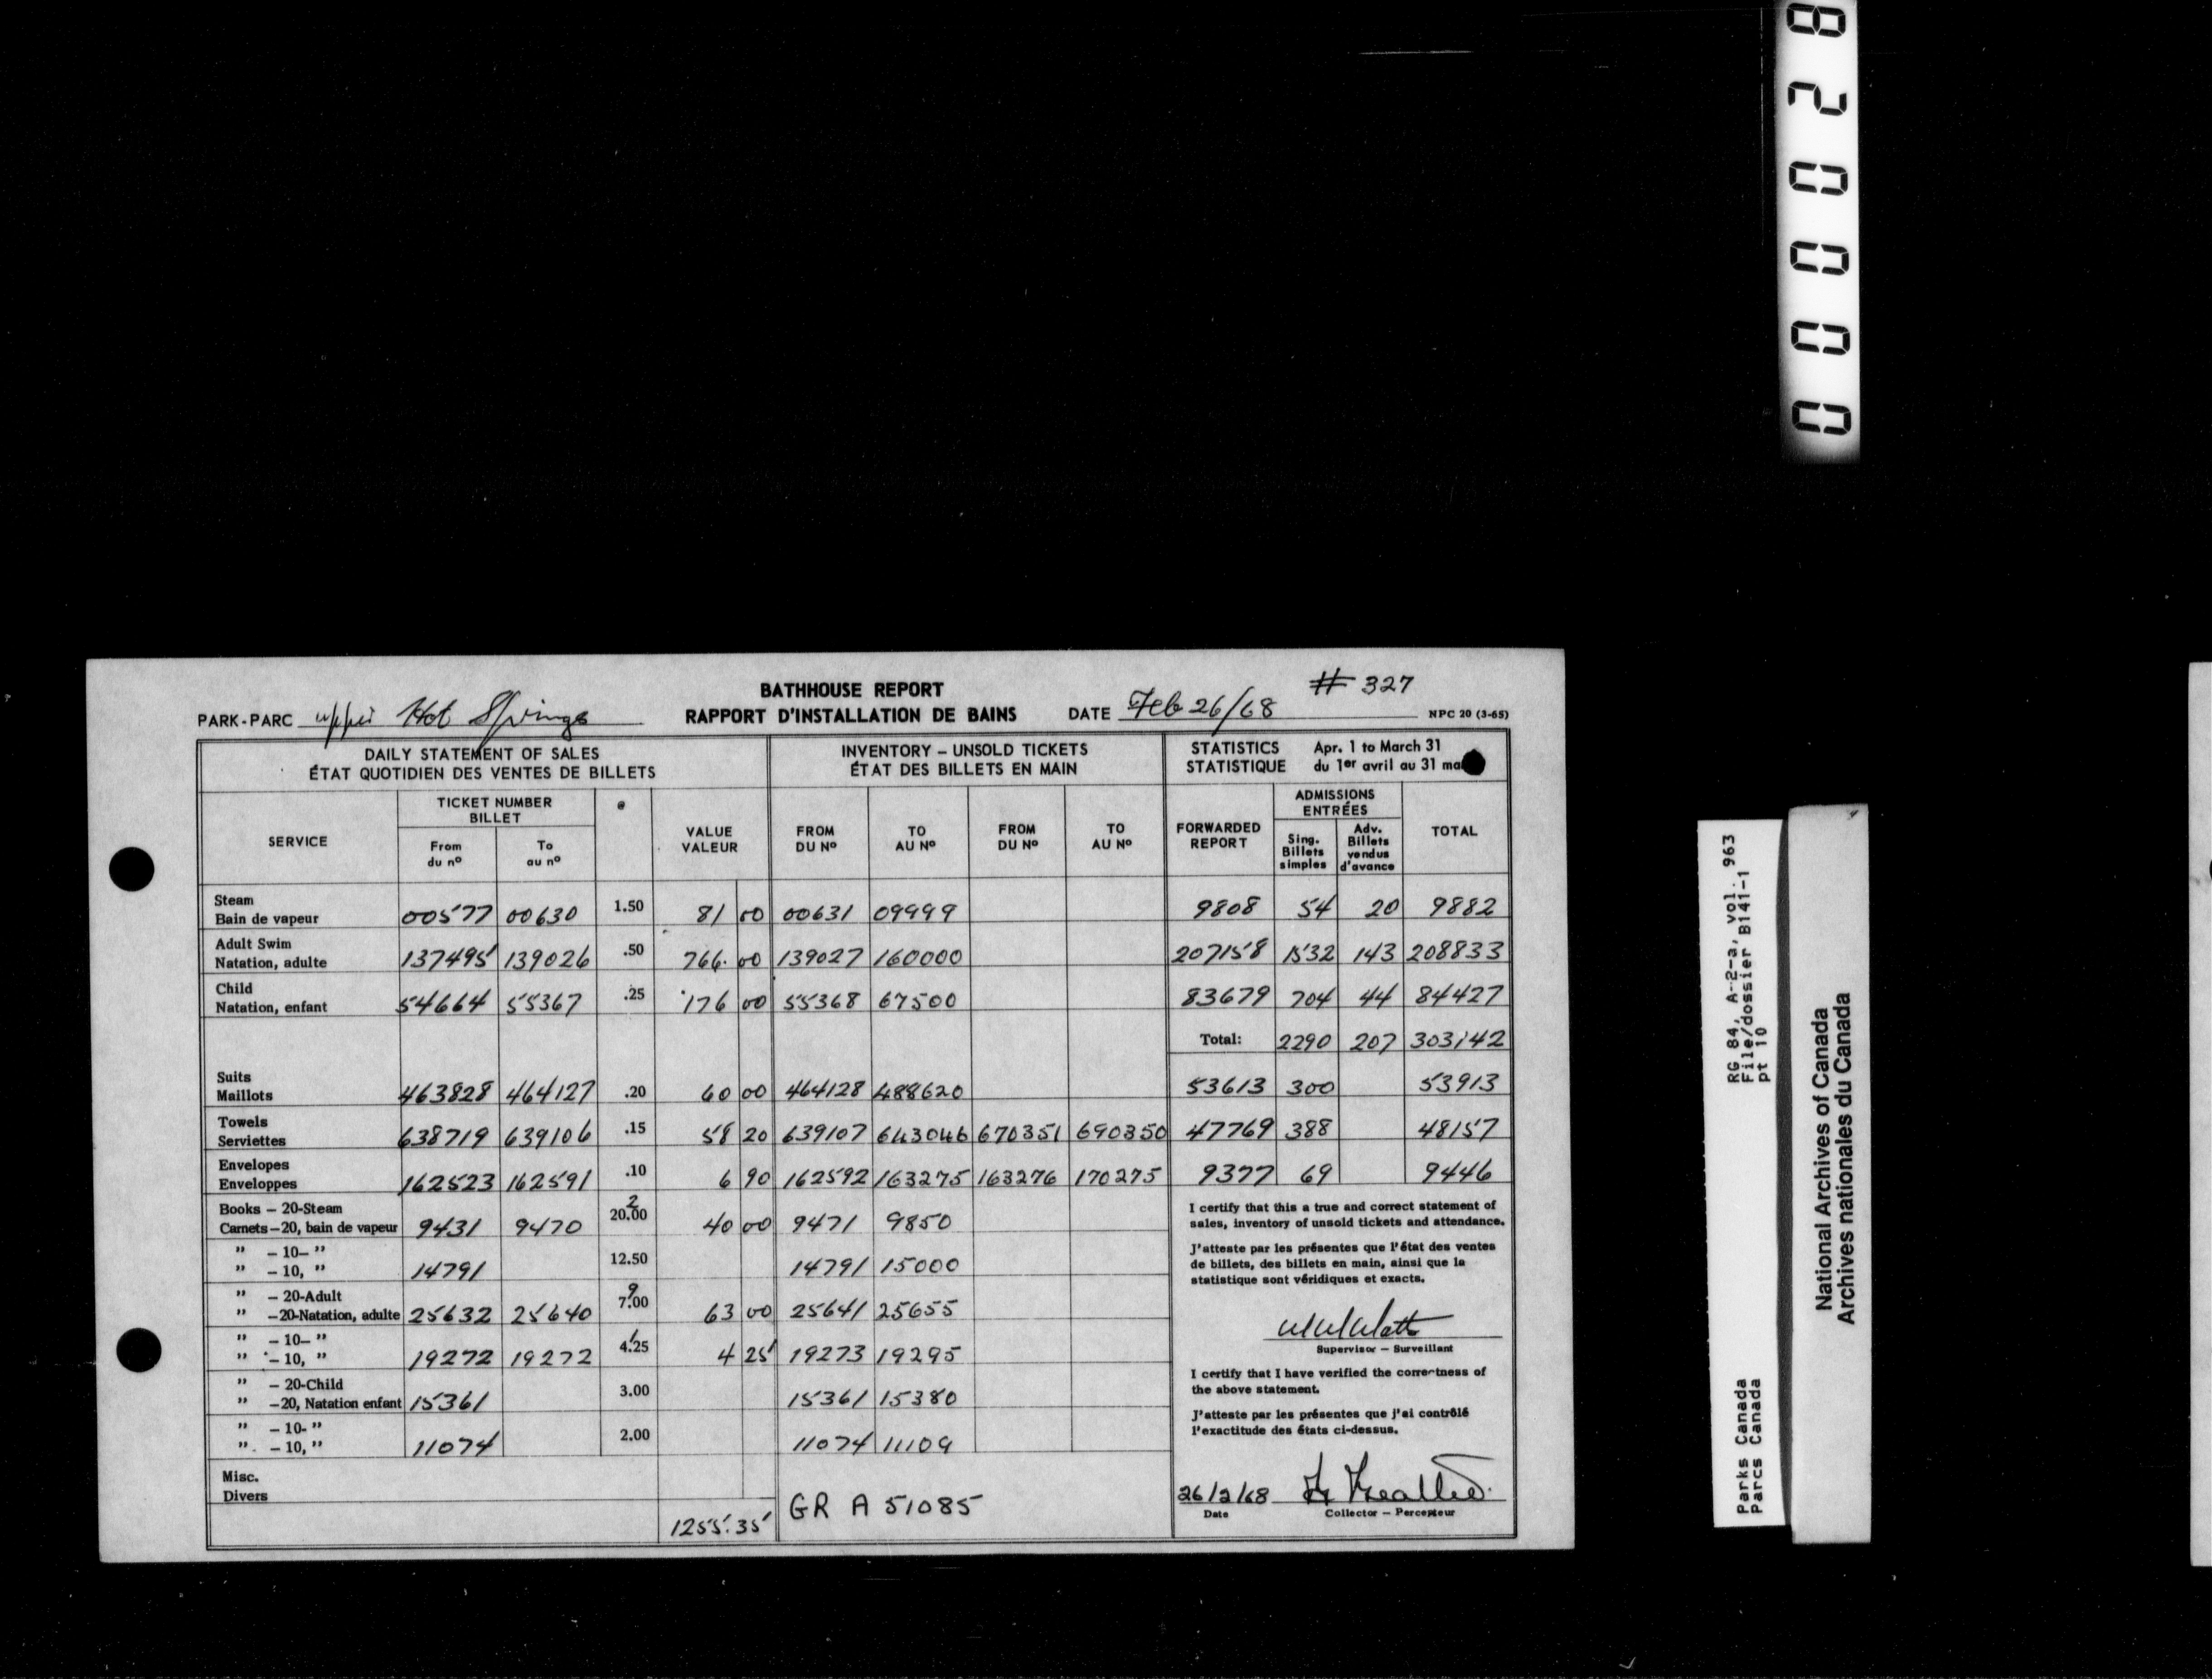 BATHHOUSE REPORT # 327
PARK-PARC Upper Hot Springs RAPPORT D'INSTALLATION DE BAINS DATE Feb 26/68 NPC 20 (3-65)
DAILY STATEMENT OF SALES INVENTORY – UNSOLD TICKETS STATISTICS Apr. 1 to March 31
ÉTAT QUOTIDIEN DES VENTES DE BILLETS ÉTAT DES BILLETS EN MAIN STATISTIQUE du 1er avril au 31
SERVICE
TICKET NUMBER
BILLET
From
du nº
To
au nº
@
VALUE
VALEUR
FROM
DU Nº
TO
AU Nº
FROM
DU Nº
TO
AU Nº
FORWARDED
REPORT
ADMISSIONS
ENTRÉES
Sing.
Billets
simples
Adv.
Billets
vendus
d'avance
TOTAL
Steam
Bain de vapeur 00577 00630 1.50 81 00 00631 09999 9808 54 20 9882
Adult Swim
Natation, adulte 137495 139026 .50 766. 00 139027 160000 207158 1532 143 208833
Child
Natation, enfant 54664 55367 .25 176 00 55368 67500 83679 704 44 84427
Total: 2290 207 303142
Suits
Maillots 463828 464127 .20 60 00 464128 488620 53613 300 53913
Towels
Serviettes 638719 639106 .15 58 20 639107 643046 670351 690350 47769 388 48157
Envelopes
Enveloppes 162523 162591 .10 6 90 162592 163275 163276 170275 9377 69 9446
Books – 20-Steam 2
Carnets–20, bain de vapeur 9431 9470 20.00 40 00 9471 9850
" – 10– "
" – 10, " 14791 12.50 14791 15000
" – 20-Adult 9
" –20-Natation, adulte 25632 25640 7.00 63 00 25641 25655
" – 10– " 1
" – 10, " 19272 19272 4.25 4 25 19273 19295
" – 20-Child
" –20, Natation enfant 15361 3.00 15361 15380
" – 10- "
" – 10, " 11074 2.00 11074 11109
Misc.
Divers
1255.35 GR A 51085
I certify that this a true and correct statement of
sales, inventory of unsold tickets and attendance.
J'atteste par les présentes que l'état des ventes
de billets, des billets en main, ainsi que la
statistique sont véridiques et exacts.
Supervisor – Surveillant
I certify that I have verified the correctness of
the above statement.
J'atteste par les présentes que j'ai contrôlé
l'exactitude des états ci-dessus.
26/2/68
Date Collector – Percepteur
00028
RG 84, A-2-a, vol. 963
File/dossier B141-1
pt 10
Parks Canada
Parcs Canada
National Archives of Canada
Archives nationales du Canada